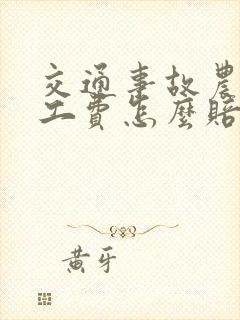 交通事故農
工費怎麼賠
黃牙